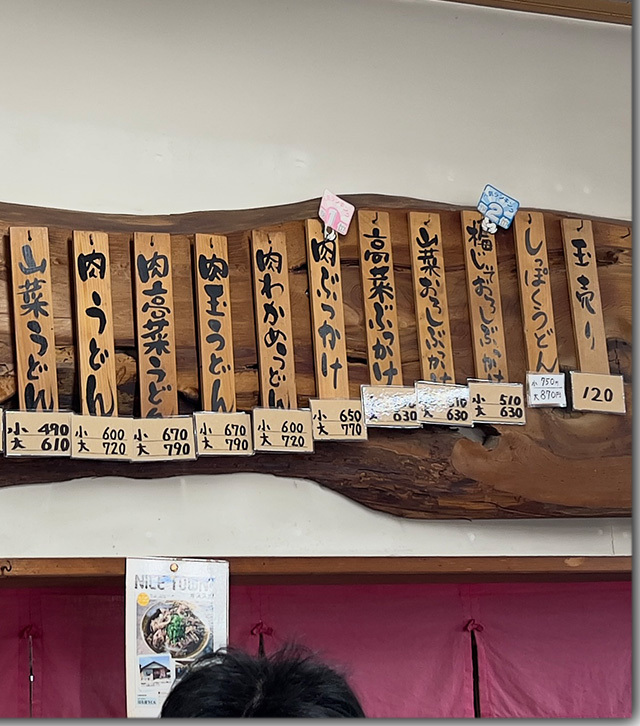 山菜うどん
小 490
大 610
肉うどん
小 600
大 720
肉高菜うどん
小 670
大 790
肉玉うどん
小 670
大 790
肉わかめうどん
小 600
大 720
肉ぶっかけ
小 650
大 770
高菜ぶっかけ
630
山菜おろしぶっかけ
630
小 510
630
しっぽくうどん
小 750円
大 870円
玉売り
120
NICE TOWN